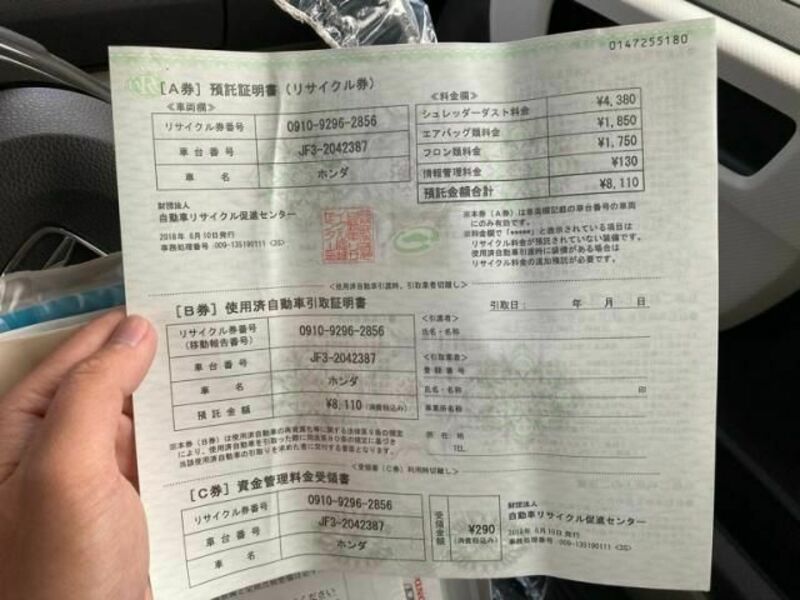 0147255180
[A券] 預託証明書 (リサイクル券)
≪車両欄≫
リサイクル券番号 0910-9296-2856
車台番号 JF3-2042387
車名 ホンダ
≪料金欄≫
シュレッダーダスト料金 ¥4,380
エアバッグ類料金 ¥1,850
フロン類料金 ¥1,750
情報管理料金 ¥130
預託金額合計 ¥8,110
財団法人
自動車リサイクル促進センター
2018年 6月10日発行
事務処理番号:009-135190111 <3S>
※本券(A券)は車両欄記載の車台番号の車両
にのみ有効です。
※料金欄で「*****」と表示されている項目は
リサイクル料金が預託されていない装備です。
使用済自動車引渡時に装備がある場合は
リサイクル料金の追加預託が必要です。
<使用済自動車引渡時、引取業者切離し>
[B券] 使用済自動車引取証明書
引取日: 年 月 日
リサイクル券番号
(移動報告番号) 0910-9296-2856
車台番号 JF3-2042387
車名 ホンダ
預託金額 ¥8,110 (消費税込み)
<引渡者>
氏名・名称
<引取業者>
登録番号
氏名・名称 印
事業所名称
所在地
TEL
※本券(B券)は使用済自動車の再資源化等に関する法律第9条の規定
により、使用済自動車を引取った際に同法第80条の規定に基づき
当該使用済自動車の引取りを求めた者に交付する書面となります。
<受領書(C券)利用時切離し>
[C券] 資金管理料金受領書
リサイクル券番号 0910-9296-2856
車台番号 JF3-2042387
車名 ホンダ
受領金額 ¥290
(消費税込み)
財団法人
自動車リサイクル促進センター
2018年 6月10日発行
事務処理番号:009-135190111 <3S>